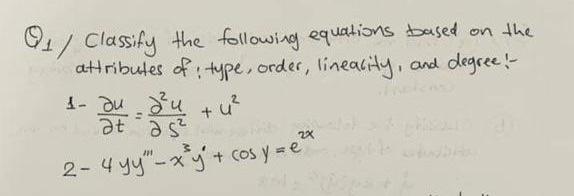 Q1/ Classify the following equations based on the
attributes of: type, order, linearity, and degree!-
1- ∂u/∂t = ∂²u/∂s² + u²
2- 4yy''' - x³y' + cos y = e²ˣ